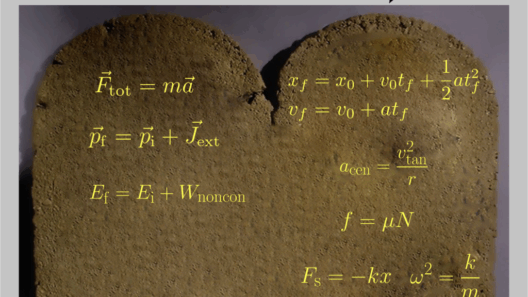 F⃗_tot = ma⃗
p⃗_f = p⃗_i + J⃗_ext
E_f = E_i + W_noncon
x_f = x_0 + v_0 t_f + 1/2 a t_f^2
v_f = v_0 + a t_f
a_cen = v_tan^2 / r
f = μN
F_s = −kx ω^2 = k/m